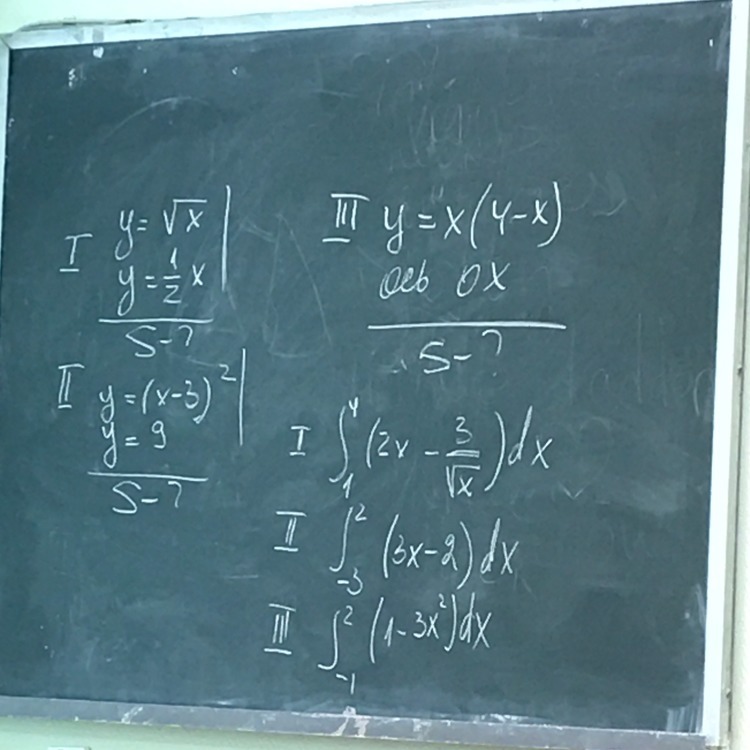 I y = √x
y = 1/2 x
S - ?
II y = (x-3)²
y = 9
S - ?
III y = x(4-x)
ось OX
S - ?
I ∫₁⁴ (2x - 3/√x) dx
II ∫₋₃² (3x-2) dx
III ∫₋₁² (1-3x²) dx